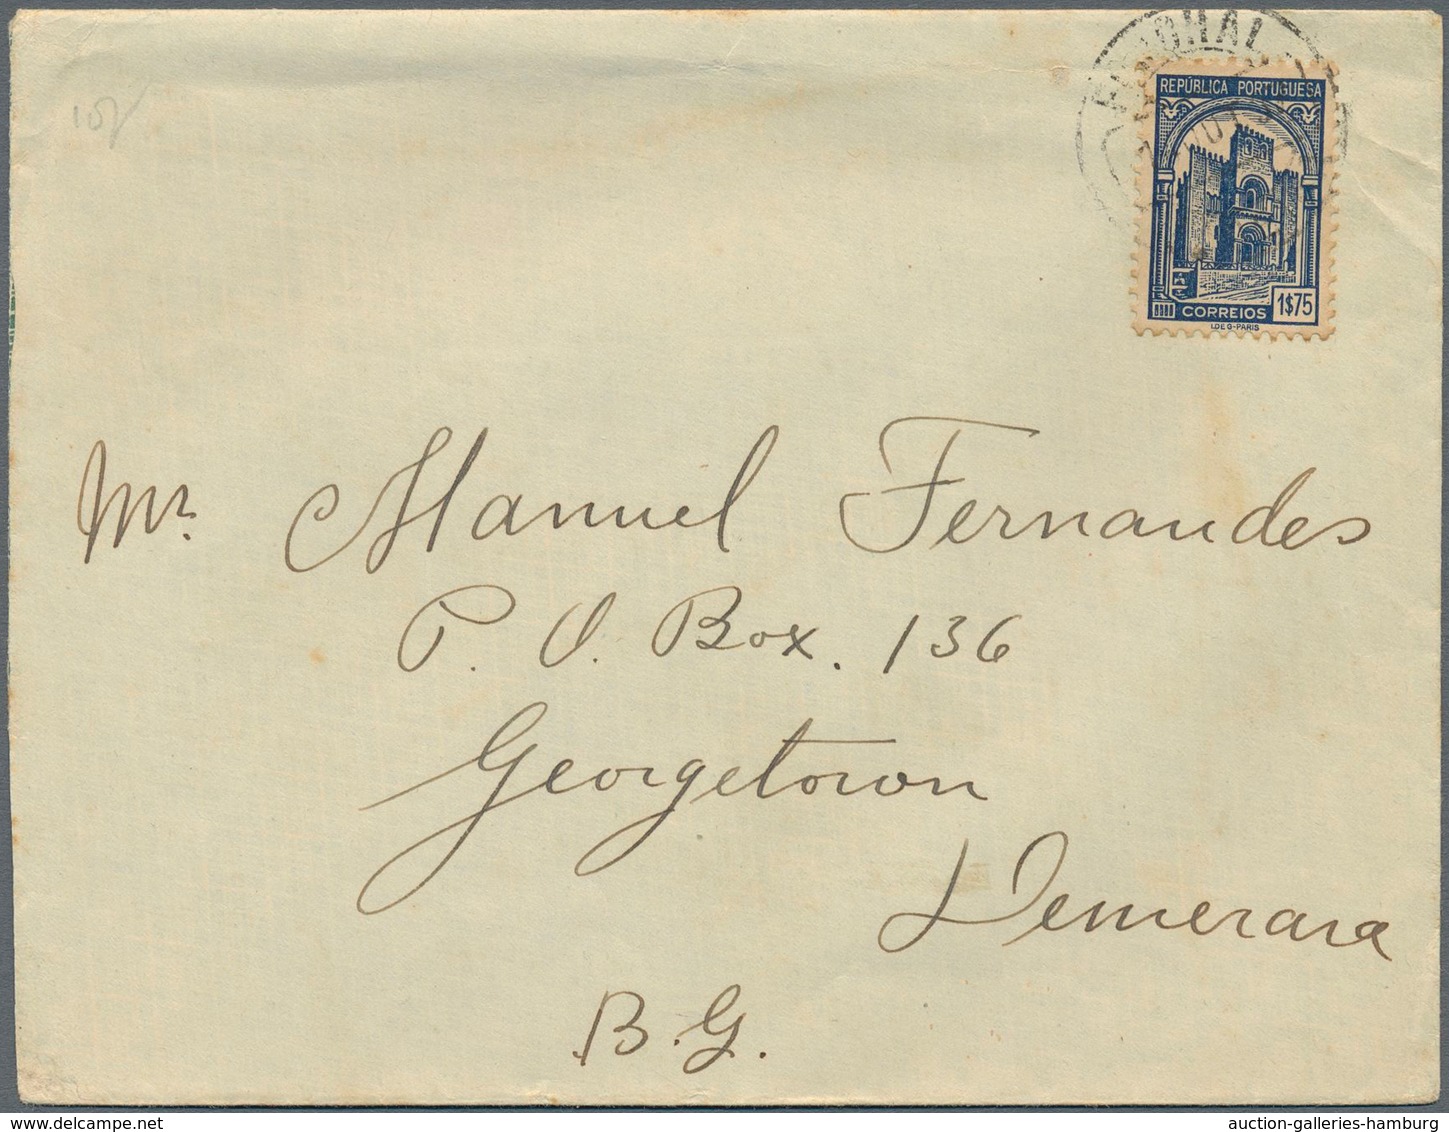 FUNCHAL
REPÚBLICA PORTUGUESA
CORREIOS 1$75
I.DE G-PARIS
Mr. Manuel Fernandes
P. O. Box. 136
Georgetown
Demerara
B.G.
auction-galleries-hamburg